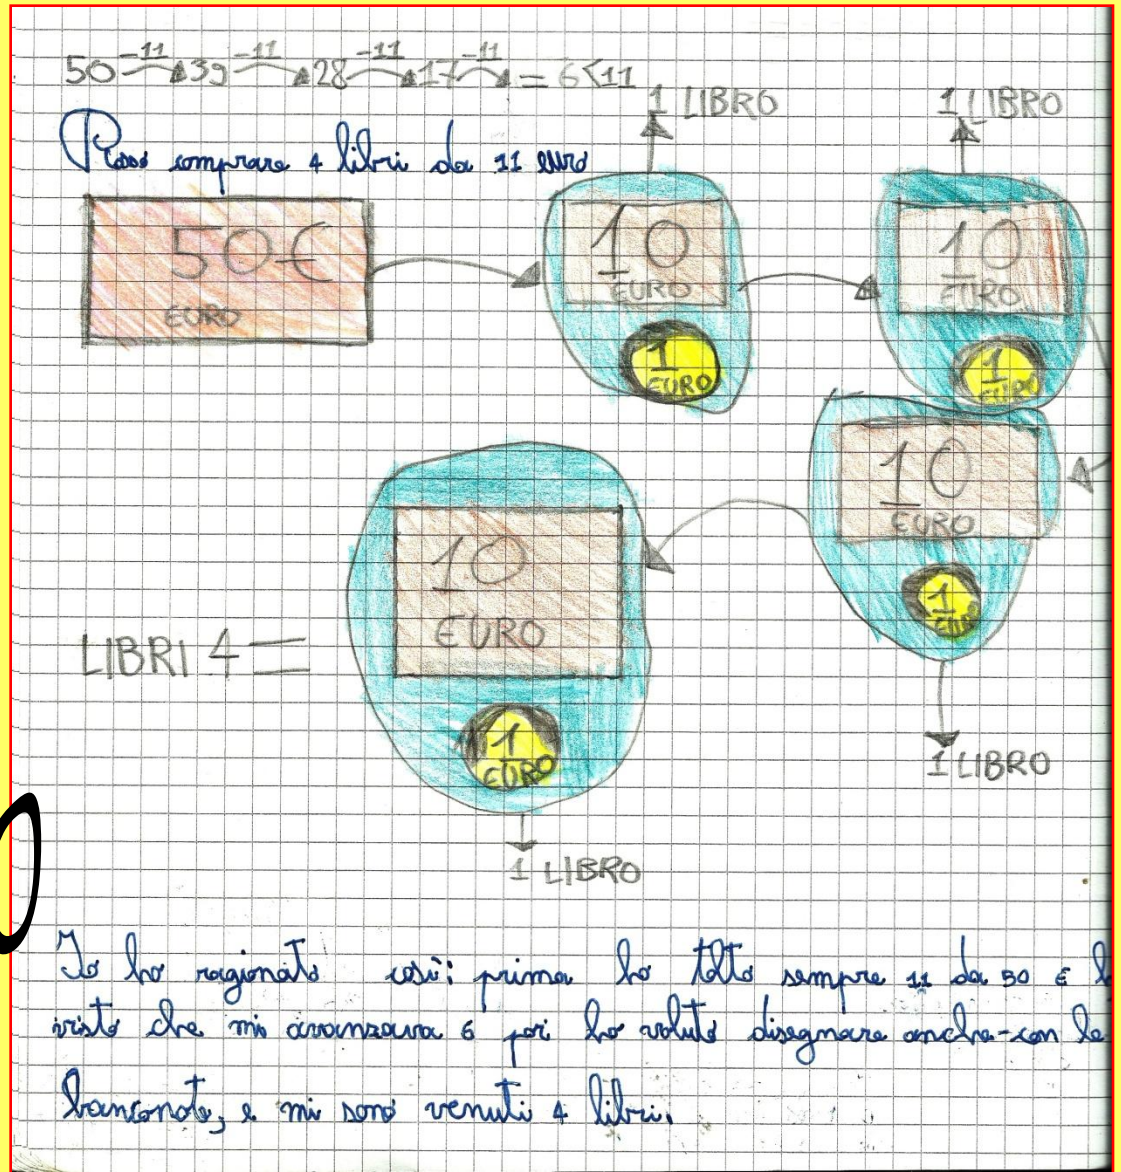 50 -11 39 -11 28 -11 17 -11 = 6<11
1 LIBRO
1 LIBRO
Posso comprare 4 libri da 11 euro
50€
EURO
10
EURO
1
EURO
10
EURO
1
EURO
10
EURO
1
EURO
10
EURO
1
EURO
LIBRI 4=
1 LIBRO
1 LIBRO
Io ho ragionato così: prima ho tolto sempre 11 da 50 e
visto che mi avanzava 6 poi ho voluto disegnare anche con le
banconote, e mi sono venuti 4 libri.